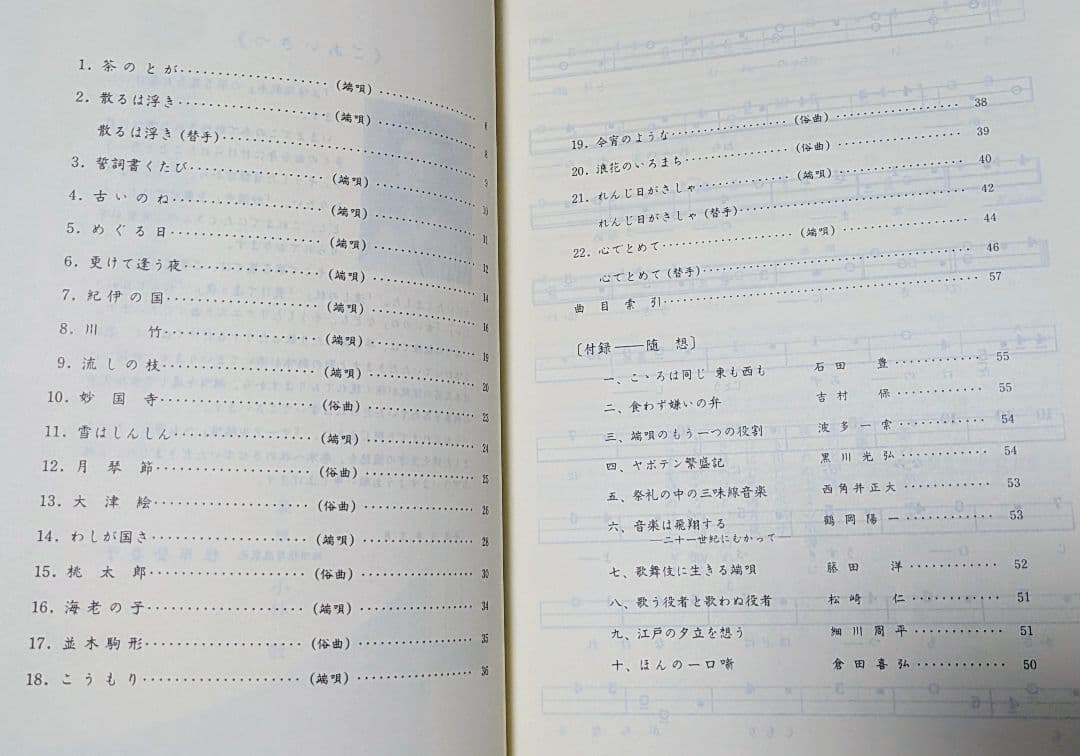 1. 茶のとが (端唄)
2. 散るは浮き (端唄) 6
散るは浮き (替手) 8
3. 誓詞書くたび (端唄) 9
4. 古いのね (端唄) 10
5. めぐる日 (端唄) 11
6. 更けて逢う夜 (端唄) 12
7. 紀伊の国 (端唄) 14
8. 川竹 (端唄) 16
9. 流しの枝 (端唄) 19
10. 妙国寺 (俗曲) 20
11. 雪はしんしん (端唄) 23
12. 月琴節 (俗曲) 24
13. 大津絵 (俗曲) 25
14. わしが国さ (端唄) 26
15. 桃太郎 (俗曲) 28
16. 海老の子 (端唄) 30
17. 並木駒形 (俗曲) 34
18. こうもり (端唄) 35
36
19. 今宵のような (俗曲) 38
20. 浪花のいろまち (俗曲) 39
21. れんじ日がさしゃ (端唄) 40
れんじ日がさしゃ (替手) 42
22. 心でとめて (端唄) 44
心でとめて (替手) 46
曲目索引 57
〔付録――随想〕
一、こゝろは同じ 東も西も 石田豊 55
二、食わず嫌いの弁 吉村保 55
三、端唄のもう一つの役割 波多一索 54
四、ヤボテン繁盛記 黒川光弘 54
五、祭礼の中の三味線音楽 西角井正大 53
六、音楽は飛翔する 鶴岡陽一 53
―二十一世紀にむかって―
七、歌舞伎に生きる端唄 藤田洋 52
八、歌う役者と歌わぬ役者 松崎仁 51
九、江戸の夕立を想う 細川周平 51
十、ほんの一口噺 倉田喜弘 50